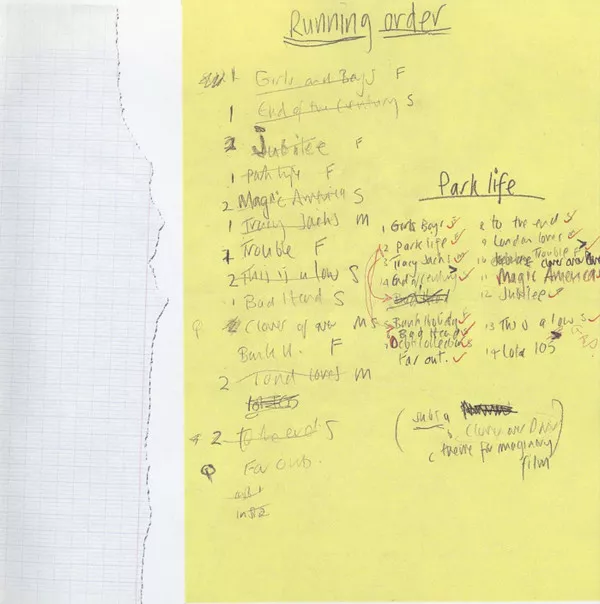 Running order
1 Girls and Boys F
1 End of the Century S
2 Jubilee F
1 Parklife F
2 Magic America S
1 Tracy Jacks M
Trouble F
2 This is a low S
1 Bad Head S
2 Clover over M S
Bank H. F
2 London loves M
lot 105
2 To the end S
Far out.
Park life
1 Girls Boys
2 Park life
3 Tracy Jacks
4 End of century
Bank Holiday
Bad Head
Debt collector
Far out.
8 to the end
9 London loves
10 Trouble F
Clover over Dover
11 Magic America
12 Jubilee
13 This a low S
14 Lot 105
(subs
b Clover over Dover
c theme for imaginary
film)